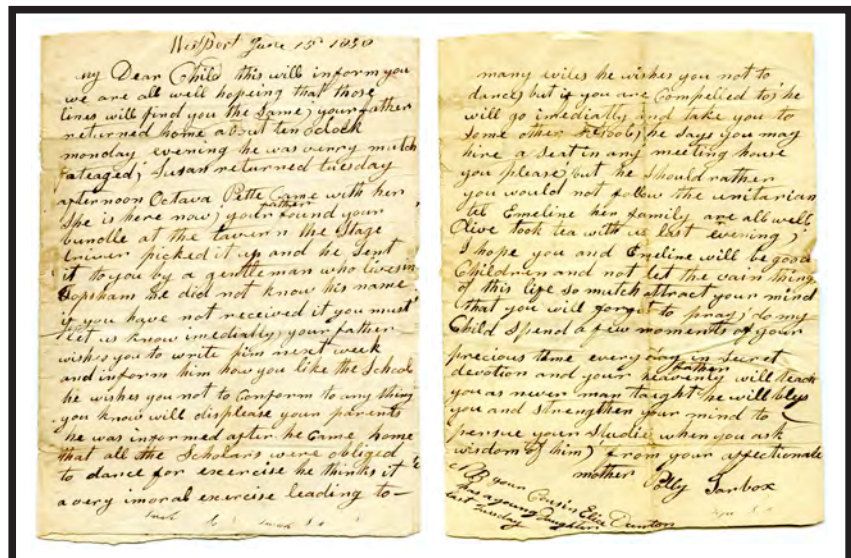 Westport June 15th 1830
my Dear Child this will inform you
we are all well hopeing that those
lines will find you the Same; your father
returned home about ten oclock
monday evening he was verry mutch
fateaged; Susan returned tuesday
afternoon Octava Pette Came with her
She is here now; your father found your
bundle at the tavern the Stage
Driver picked it up and he Sent
it to you by a gentleman who lives in
Topsham he did not know his name
if you have not received it you must
let us know imediatly; your father
wishes you to write him next week
and inform him how you like the School
he wishes you not to Conform to any thing
you know will displease your parents
he was informed after he Came home
that all the Scholars were obliged
to dance for exercise he thinks it
a very imoral exercise leading to
many eviles he wishes you not to
dance; but if you are Compelled to; he
will go imediatly and take you to
Some other School; he Says you may
hire a Seat in any meeting house
you please; but he Should rather
you would not follow the unitarian
Emeline her family are all well
Olive took tea with us last evening;
I hope you and Emeline will be good
Children and not let the vain things
of this life So mutch attract your mind
that you will forget to pray; do my
Child Spend a few moments of your
precious time every day in Secret
devotion and your heavenly father will teach
you as never man taught he will bless
you and Strengthen your mind to
persue your Studie when you ask
wisdom of him) from your affectionate
mother Polly Tarbox
NB your Cousin Eliza Dunton
has a young daughter
last tuesday